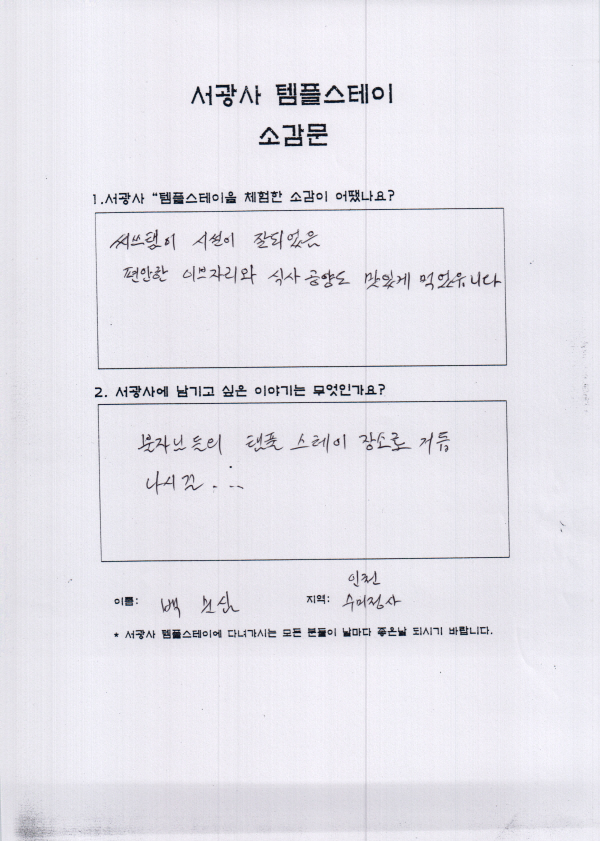 서광사 템플스테이
소감문
1.서광사 “템플스테이을 체험한 소감이 어땠나요?
씨쓰템이 시설이 잘되었음
편안한 이브자리와 식사 공양도 맛있게 먹었읍니다
2. 서광사에 남기고 싶은 이야기는 무엇인가요?
불자님들의 템플 스테이 장소로 거듭
나시길. ∴
인천
이름: 백 지역: 수미정사
* 서광사 템플스테이에 다녀가시는 모든 분들이 날마다 좋은날 되시기 바랍니다.